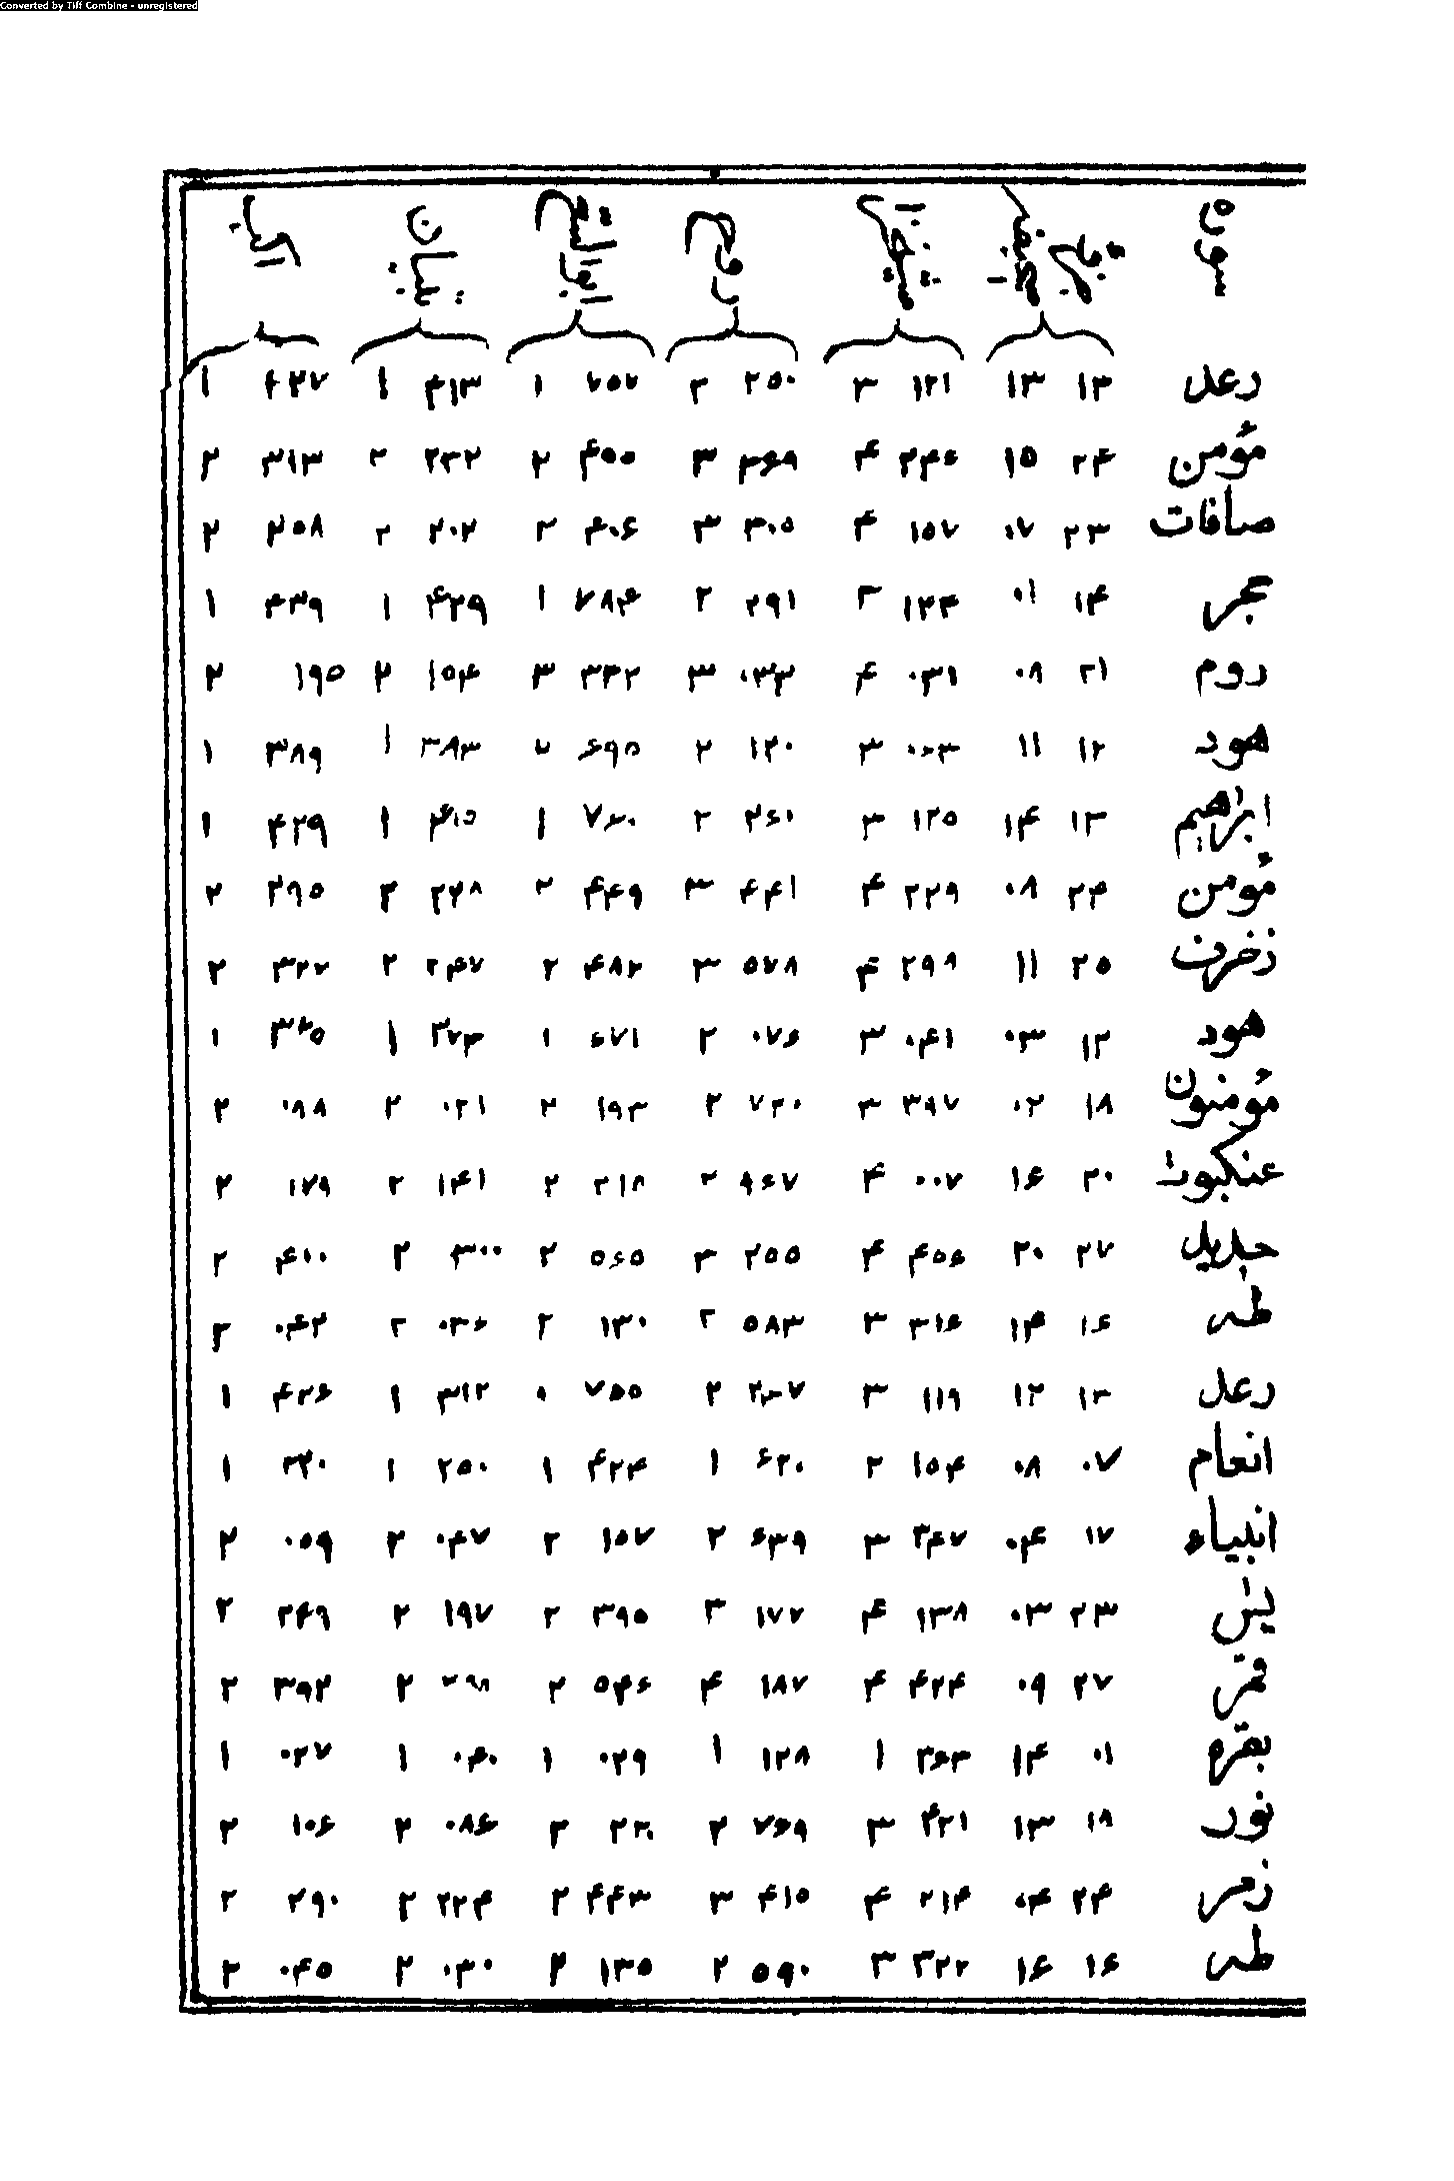 Converted by Tiff Combine - unregistered
سورة
رعد ۱۳ ۱۳ ۱۲۱ ۳ ۲۵۰ ۲ ۷۵۷ ۱ ۴۱۳ ۱ ۴۲۷ ۱
مؤمن ۲۴ ۱۵ ۲۴۶ ۴ ۴۶۹ ۳ ۴۵۵ ۲ ۲۳۲ ۲ ۳۱۳ ۲
صافات ۲۳ ۰۷ ۱۵۷ ۴ ۳۰۵ ۳ ۴۰۶ ۲ ۲۰۲ ۲ ۲۵۸ ۲
حجر ۱۴ ۰۱ ۱۳۴ ۳ ۲۹۱ ۲ ۷۸۴ ۱ ۴۲۹ ۱ ۴۳۹ ۱
روم ۲۱ ۰۸ ۰۳۱ ۴ ۰۳۳ ۳ ۳۳۲ ۳ ۱۵۴ ۲ ۱۹۵ ۲
هود ۱۲ ۱۱ ۰۶۳ ۳ ۱۲۰ ۲ ۶۹۵ ۳۸۳ ۱ ۳۸۹ ۱
ابراهیم ۱۳ ۱۴ ۱۲۵ ۳ ۲۶۰ ۲ ۷۶۰ ۱ ۴۱۵ ۱ ۴۲۹ ۱
مؤمن ۲۴ ۰۸ ۲۲۹ ۴ ۴۴۱ ۳ ۴۴۹ ۲ ۲۲۸ ۲ ۲۹۵ ۲
زخرف ۲۵ ۱۱ ۲۹۸ ۴ ۵۷۸ ۳ ۴۸۲ ۲ ۲۴۷ ۲ ۳۲۲ ۲
هود ۱۲ ۰۳ ۰۴۱ ۳ ۰۷۶ ۲ ۶۷۱ ۱ ۳۷۳ ۱ ۳۲۵ ۱
مؤمنون ۱۸ ۰۲ ۳۹۷ ۳ ۷۲۰ ۲ ۱۹۳ ۲ ۰۲۱ ۲ ۰۸۸ ۲
عنکبوت ۲۰ ۱۶ ۰۰۷ ۴ ۹۶۷ ۲ ۲۱۸ ۲ ۱۴۱ ۲ ۱۷۹ ۲
حدید ۲۷ ۲۰ ۴۵۶ ۴ ۲۵۵ ۳ ۵۶۵ ۲ ۳۰۰ ۲ ۴۱۰ ۲
طه ۱۶ ۱۴ ۳۱۶ ۳ ۵۸۳ ۲ ۱۳۰ ۲ ۰۳۶ ۲ ۰۴۲ ۲
رعد ۱۳ ۱۲ ۱۱۹ ۳ ۲۴۷ ۲ ۷۵۵ ۳۱۲ ۱ ۴۲۶ ۱
انعام ۰۷ ۰۸ ۱۵۴ ۲ ۶۲۰ ۱ ۴۲۴ ۱ ۲۵۰ ۱ ۲۲۰ ۱
انبیاء ۱۷ ۰۴ ۳۴۷ ۳ ۶۳۹ ۲ ۱۵۷ ۲ ۰۴۷ ۲ ۰۵۹ ۲
یس ۲۳ ۰۳ ۱۳۸ ۴ ۱۷۲ ۳ ۳۹۵ ۲ ۱۹۷ ۲ ۲۴۹ ۲
قمر ۲۷ ۰۹ ۴۲۴ ۴ ۱۸۷ ۴ ۵۴۶ ۲ ۲۹۸ ۲ ۳۹۲ ۲
بقره ۰۱ ۱۴ ۳۶۳ ۱ ۱۲۸ ۱ ۰۲۹ ۱ ۰۴۰ ۱ ۰۲۷ ۱
نور ۱۸ ۱۳ ۴۲۱ ۳ ۷۶۹ ۲ ۲۲۰ ۲ ۰۸۶ ۲ ۱۰۶ ۲
زمر ۲۴ ۰۴ ۲۱۴ ۴ ۴۱۵ ۳ ۴۴۳ ۲ ۲۲۴ ۲ ۲۹۰ ۲
طه ۱۶ ۱۶ ۳۲۲ ۳ ۵۹۰ ۲ ۱۳۵ ۲ ۰۴۰ ۲ ۰۴۵ ۲